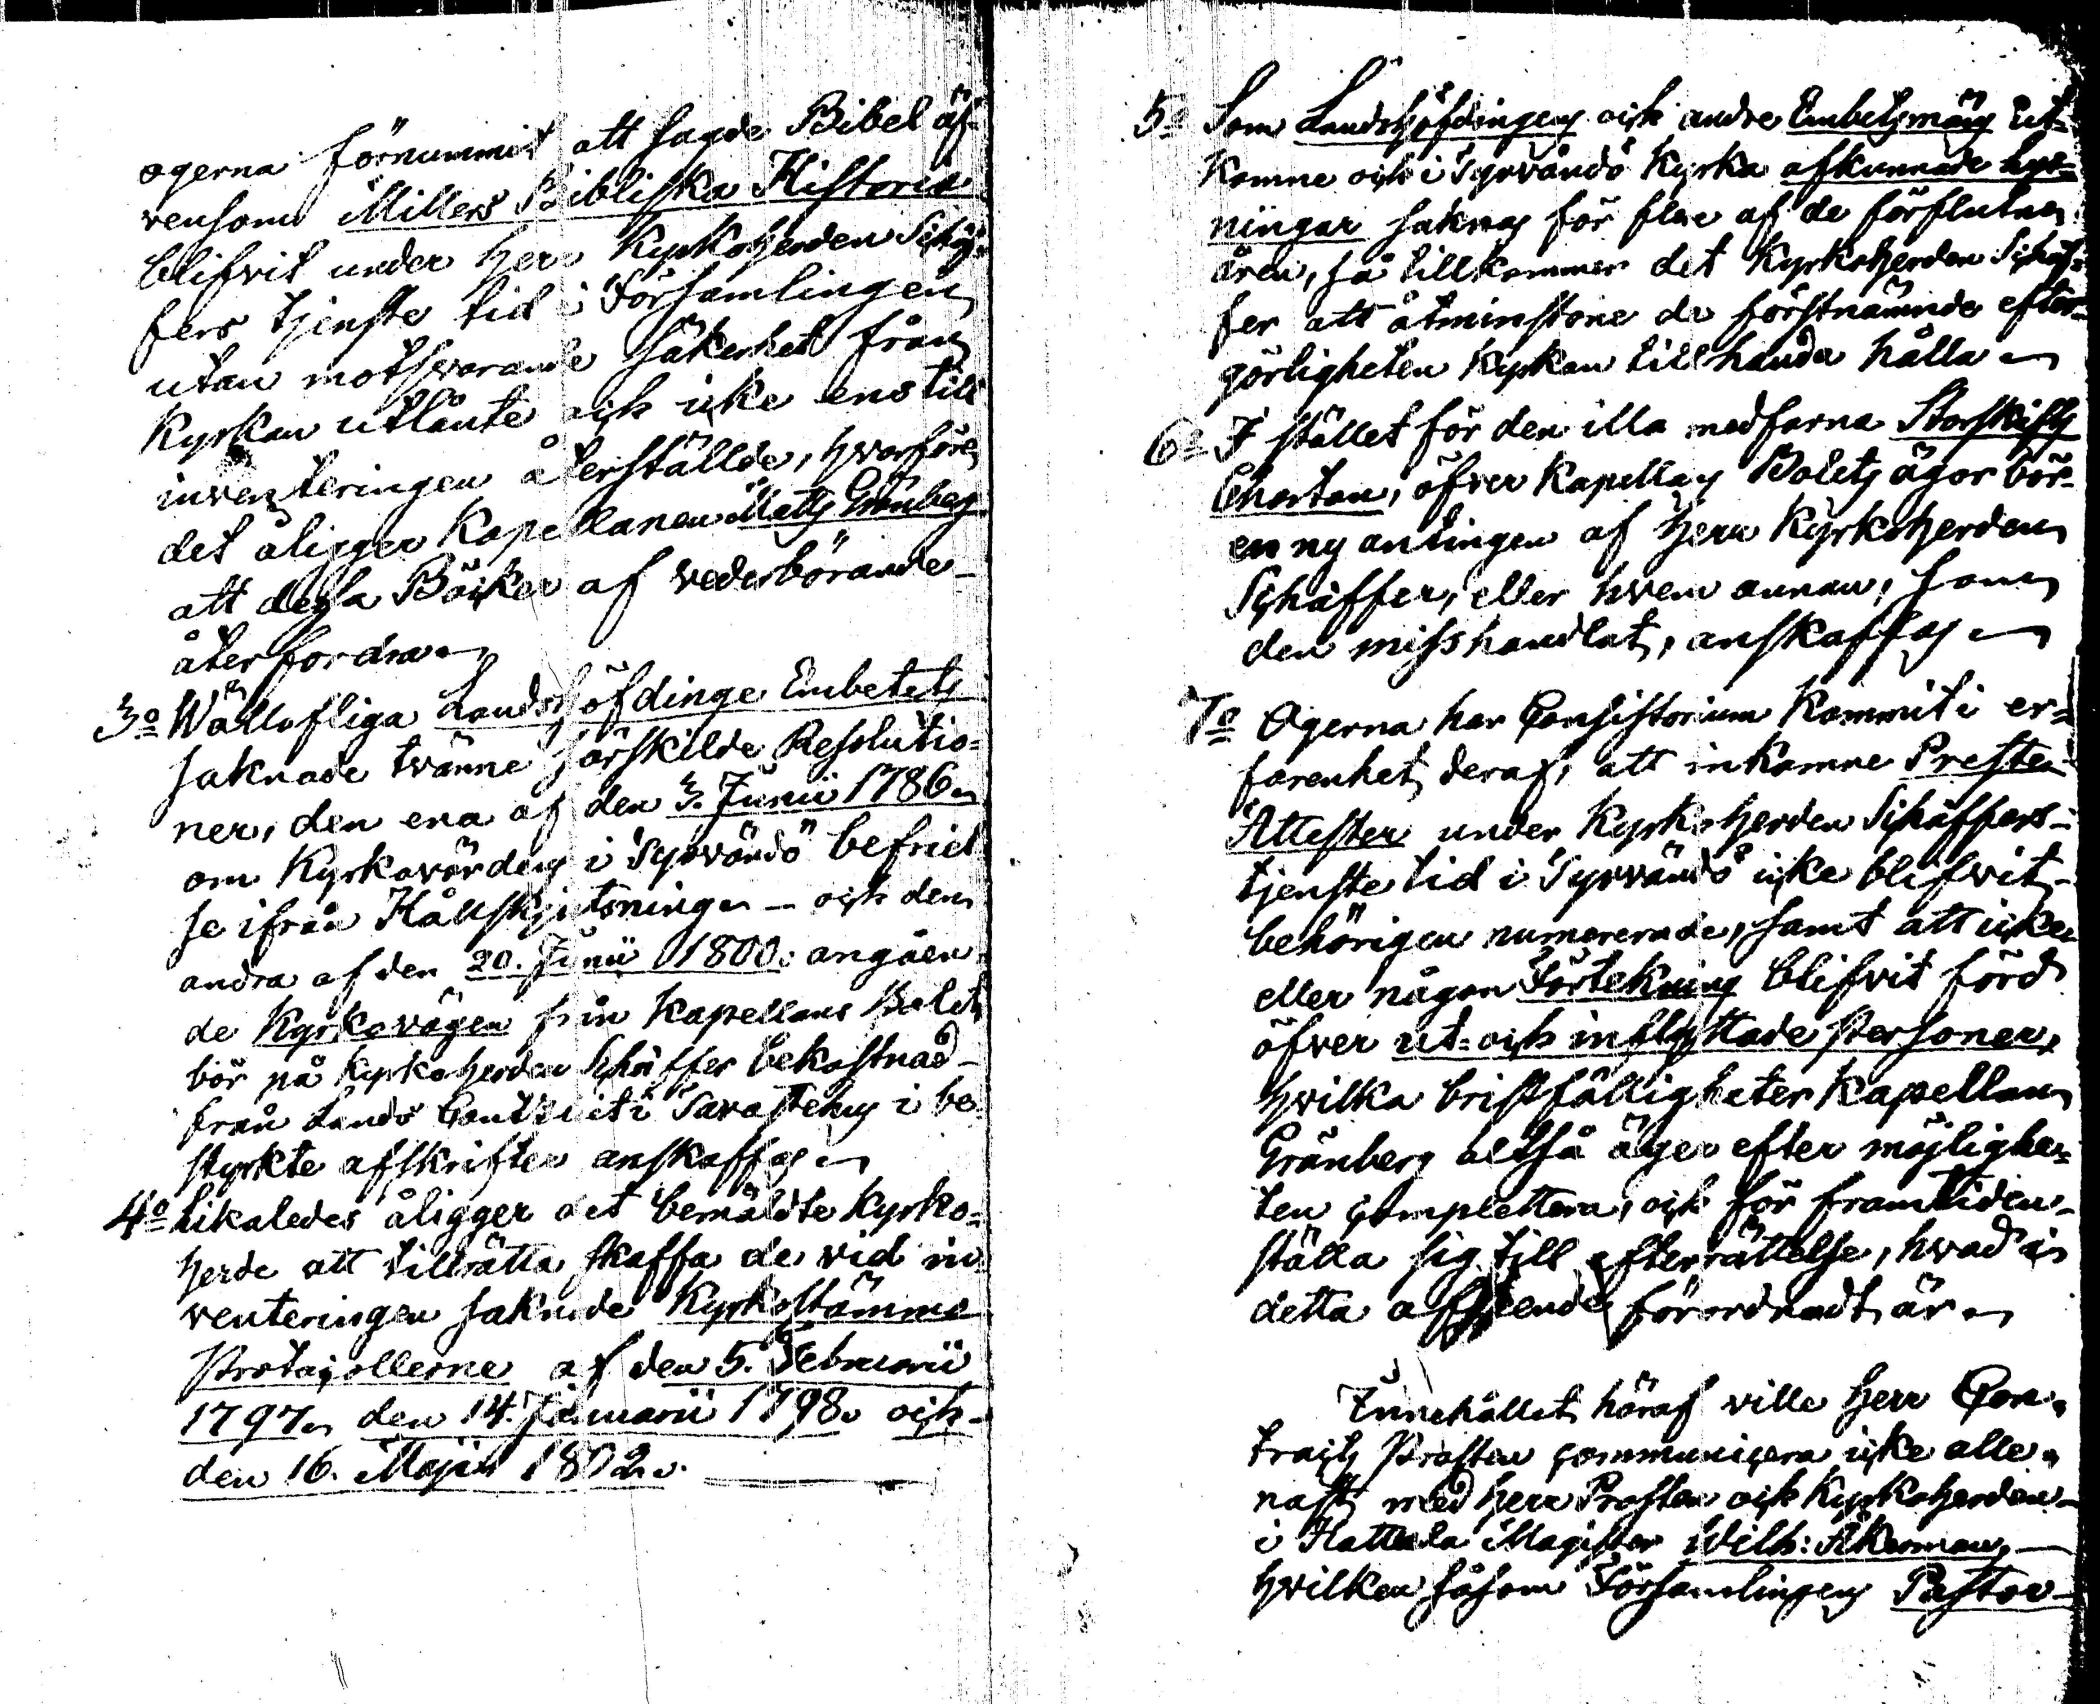 ogerna förnummit att sagde Bibel äf-
vensom Millers Bibliska Historia
blifvit under Herr Kyrkoherden Schäf-
fers tjenste tid i Församlingen
utan motsvarande säkerhet från
Kyrkan utlånte och icke ens till
inventeringen återstälde, hvarföre
det åligger Kapellanen Matts Grönberg
att dessa Böcker af vederbörande
återfordra
3º Wällofliga Landshöfdinge Embetets
saknade tvänne särskilde Resolutio=
ner, den ena af den 3. Junii 1786
om Kyrkovärdens i Syrvändö befriel
se ifrån Hållskjutsningen – och den
andra af den 20. Junii 1800. angåen
de Kyrkovägen från Kapellans Bolet
bör på Kyrkoherden Schäffer bekostnad
från Lands Contoiret i Tavastehus i be
styrkte afskrifter anskaffas
4º Likaledes åligger det bemäldte Kyrko=
herde att tillrätta skaffa de vid in
venteringen saknade Kyrkostämmo
Protocollerne af den 5. Februarii
1797, den 14. Januarii 1798. och
den 16. Maji 1802.
5º Som Landshöfdingens och andre Embetsmäns Ut=
komne och i Syrvändö Kyrka afkunnade kun=
ningar saknas för flere af de förflutne
åren, så tillkommer det Kyrkoherden Schäf=
fer att åtminstone de förstnämnde efter=
görligheten Kyrkan tillhanda hålla
6º I stället för den illa medfarna Storskifts
Chartan, öfver Kapellans Bolets ägor bör
en ny antingen af Herr Kyrkoherden
Schäffer, eller hvem annan, som
den misshandlat, anskaffas
7º Ogerna har Consistorium kommit i er=
farenhet deraf, att inkomne Preste
Attester under Kyrkoherden Schäffers
tjenste tid i Syrvändö icke blifvit
behörigen numrerade, samt att icke
eller någon Förtekning blifvit förd
öfver ut= och inflyttade Personer,
hvilka bristfälligheter Kapellan
Grönberg altså äger efter möjlighe=
ten complettera, och för framtiden
ställa sig till efterrättelse, hvad i
detta afseende förordnadt är
Innehållet häraf ville Herr Con=
tracts Prosten communicera icke alle=
nast med Herr Prosten och Kyrkoherden
i Hattula Magister Wilh: Åkerman,
hvilken såsom Församlingens Pastor